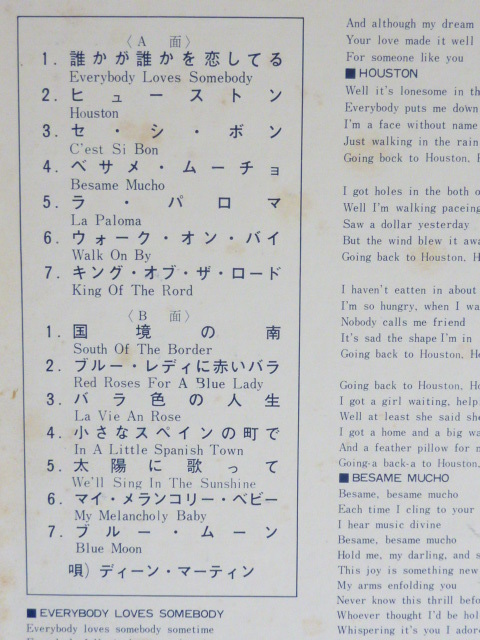 〈A 面〉
1. 誰かが誰かを恋してる
Everybody Loves Somebody
2. ヒューストン
Houston
3. セ・シ・ボン
C'est Si Bon
4. ベサメ・ムーチョ
Besame Mucho
5. ラ・パロマ
La Paloma
6. ウォーク・オン・バイ
Walk On By
7. キング・オブ・ザ・ロード
King Of The Rord
〈B 面〉
1. 国境の南
South Of The Border
2. ブルー・レディに赤いバラ
Red Roses For A Blue Lady
3. バラ色の人生
La Vie An Rose
4. 小さなスペインの町で
In A Little Spanish Town
5. 太陽に歌って
We'll Sing In The Sunshine
6. マイ・メランコリー・ベビー
My Melancholy Baby
7. ブルー・ムーン
Blue Moon
唄) ディーン・マーティン
■ EVERYBODY LOVES SOMEBODY
Everybody loves somebody sometime
And although my dream
Your love made it well
For someone like you
■ HOUSTON
Well it's lonesome in th
Everybody puts me down
I'm a face without name
Just walking in the rain
Going bock to Houston, H
I got holes in the both o
Well I'm walking paceing
Saw a dollar yesterday
But the wind blew it awa
Going back to Houston, H
I haven't eatten in about
I'm so hungry, when I wa
Nobody calls me friend
It's sad the shape I'm in
Going back to Houston, Ho
Going back to Houston, Ho
I got a girl waiting, help
Well at least she said she
I got a home and a big wa
And a feather pillow for m
Going-a back-a to Houston,
■ BESAME MUCHO
Besame, besame mucho
Each time I cling to your
I hear music divine
Besame, besame mucho
Hold me, my darling, and s
This joy is something new
My arms enfolding you
Never know this thrill befo
Whoever thought I'd be hol
Whispering it's you I ador